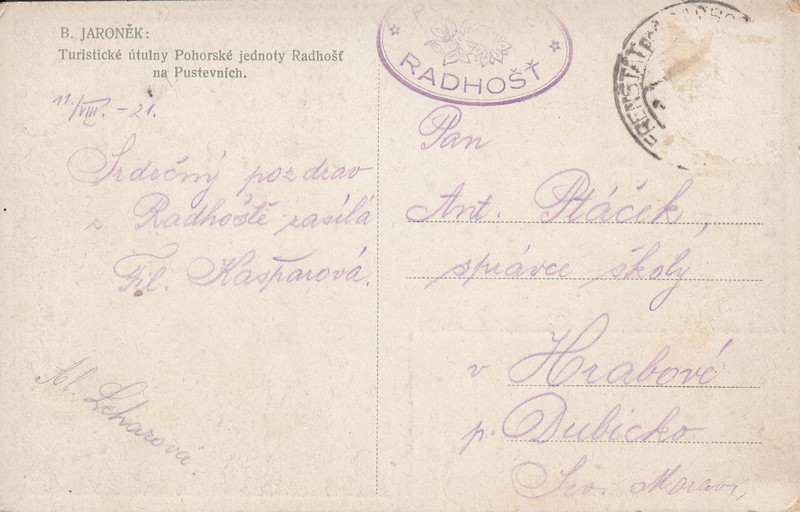 B. JARONĚK:
Turistické útulny Pohorské jednoty Radhošť
na Pustevních.
11./VIII. – 21.
Srdečný pozdrav
z Radhoště zasílá
Fil. Kašparová.
Al. Leharová.
RADHOŠŤ
FRENŠTÁT
Pan
Ant. Ptáček,
správce školy
v Hrabové
p. Dubicko
Sev. Morava